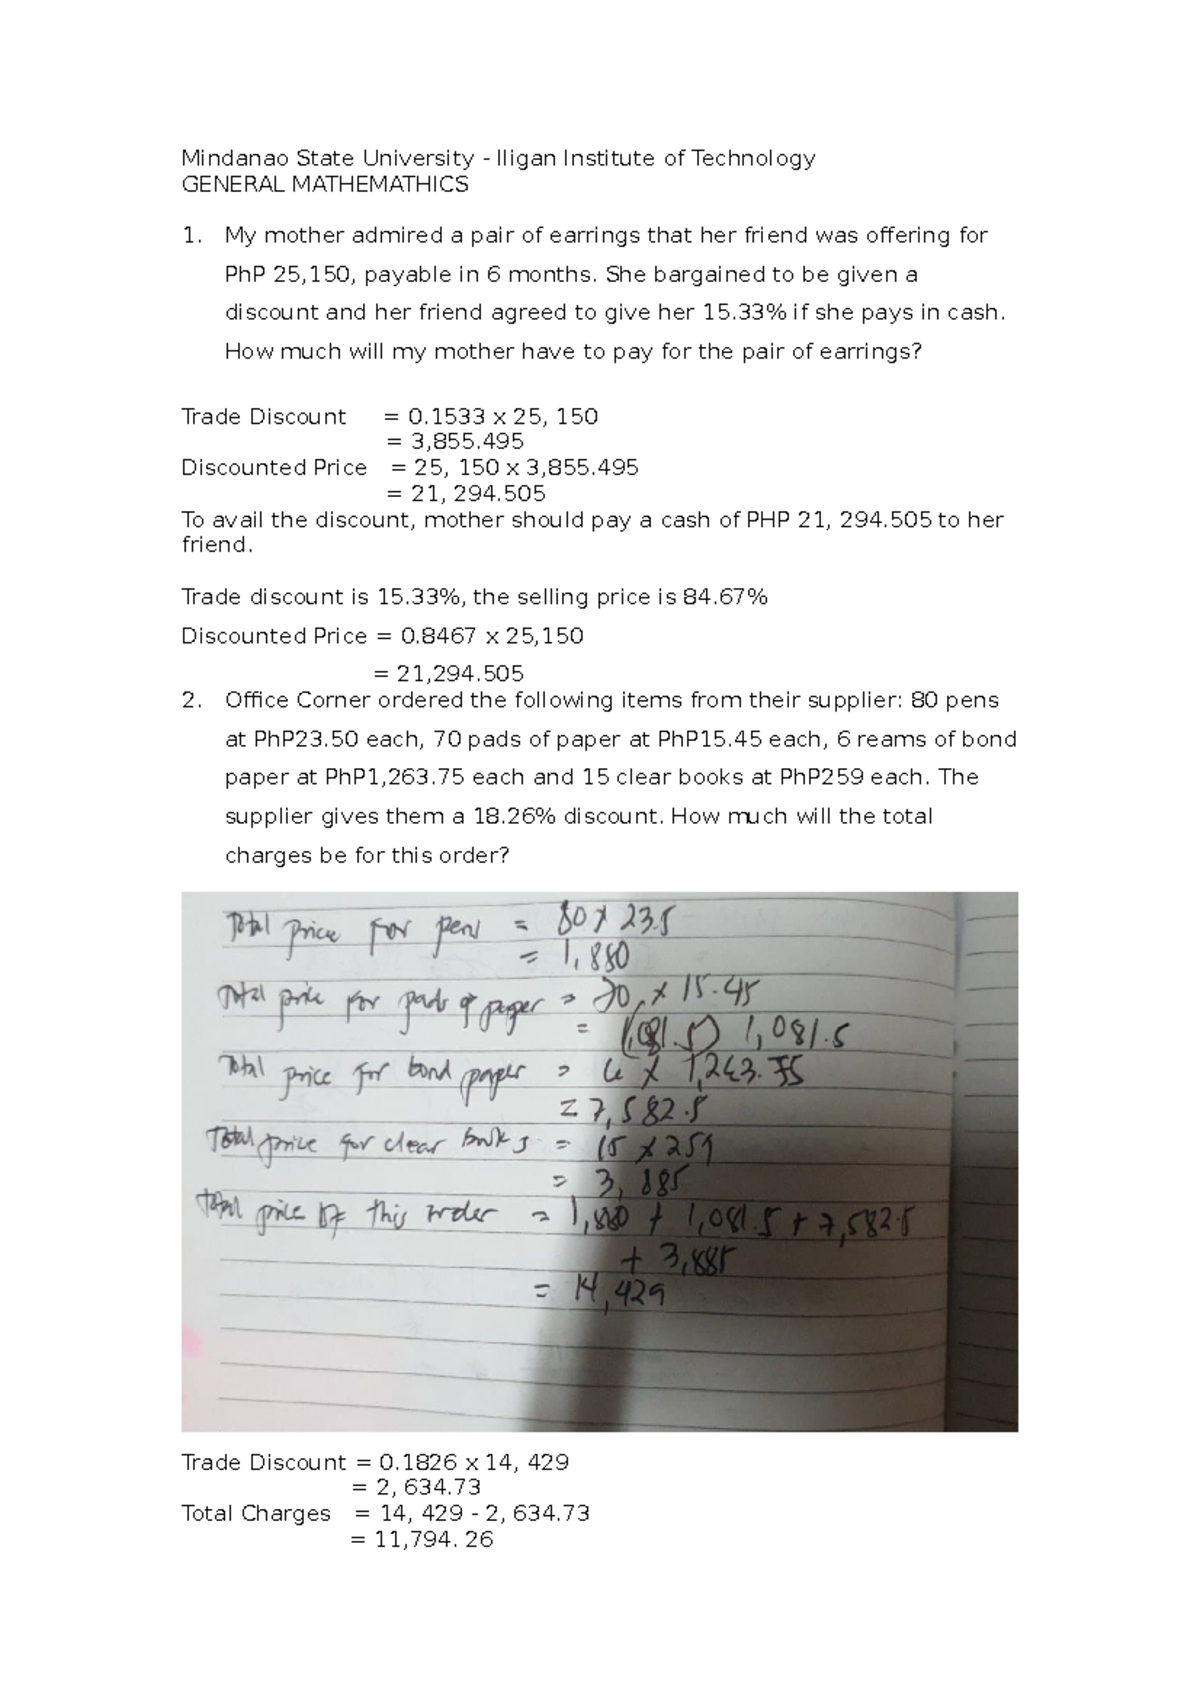 Mindanao State University - Iligan Institute of Technology
GENERAL MATHEMATHICS
1. My mother admired a pair of earrings that her friend was offering for
PhP 25,150, payable in 6 months. She bargained to be given a
discount and her friend agreed to give her 15.33% if she pays in cash.
How much will my mother have to pay for the pair of earrings?
Trade Discount = 0.1533 x 25, 150
= 3,855.495
Discounted Price = 25, 150 x 3,855.495
= 21, 294.505
To avail the discount, mother should pay a cash of PHP 21, 294.505 to her
friend.
Trade discount is 15.33%, the selling price is 84.67%
Discounted Price = 0.8467 x 25,150
= 21,294.505
2. Office Corner ordered the following items from their supplier: 80 pens
at PhP23.50 each, 70 pads of paper at PhP15.45 each, 6 reams of bond
paper at PhP1,263.75 each and 15 clear books at PhP259 each. The
supplier gives them a 18.26% discount. How much will the total
charges be for this order?
Total price for pens = 80 x 23.5
= 1,880
Total price for pads of paper = 70 x 15.45
= (1,081.5) 1,081.5
Total price for bond paper = 6 x 1,263.75
= 7,582.5
Total price for clear books = 15 x 259
= 3,885
Total price of this order = 1,880 + 1,081.5 + 7,582.5
+ 3,885
= 14,429
Trade Discount = 0.1826 x 14, 429
= 2, 634.73
Total Charges = 14, 429 - 2, 634.73
= 11,794. 26